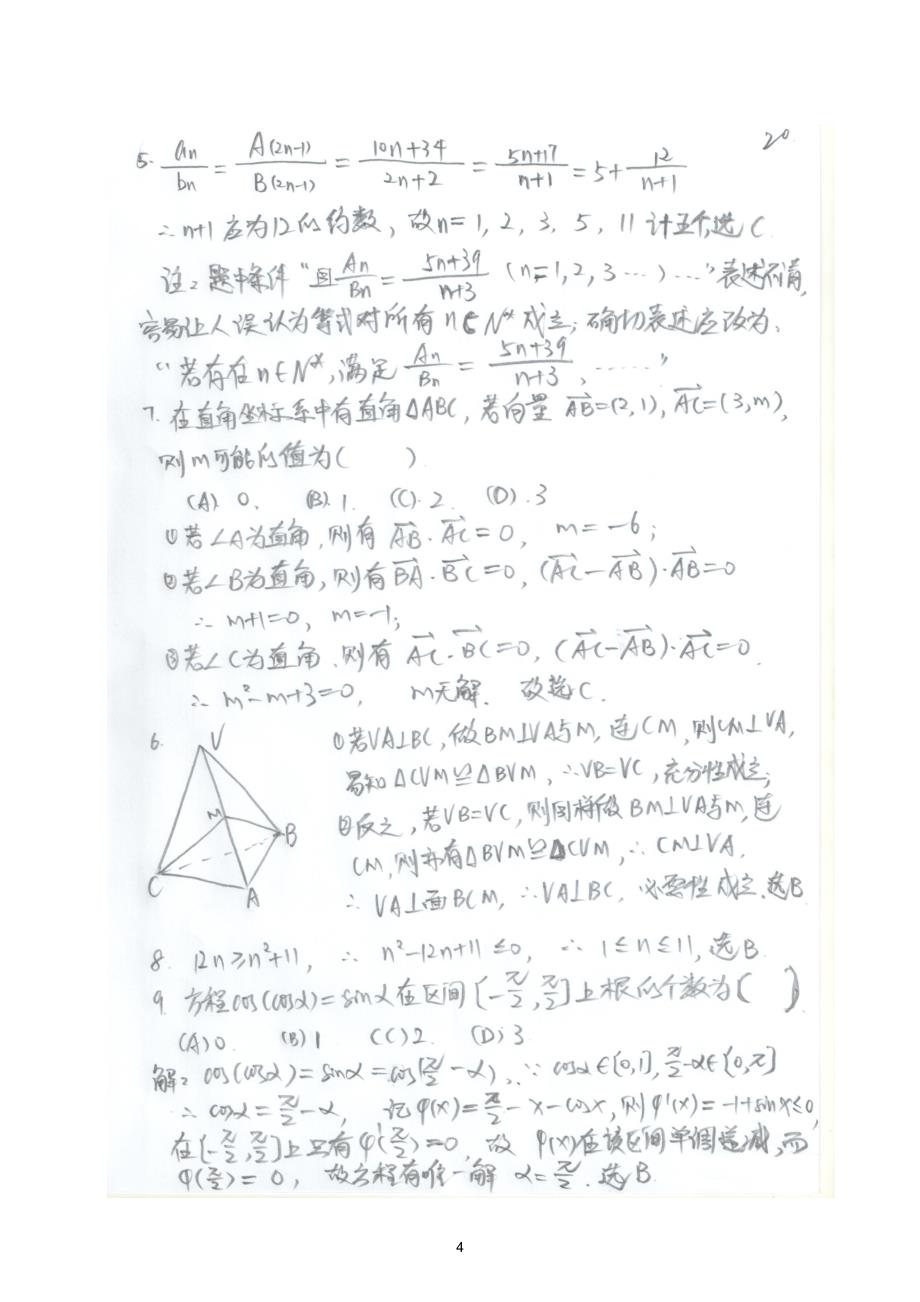 20
5. an/bn = A(2n-1)/B(2n-1) = (10n+34)/(2n+2) = (5n+17)/(n+1) = 5 + 12/(n+1)
∴ n+1应为12的约数, 故n=1, 2, 3, 5, 11 计五个,选C
注: 题中条件“且 An/Bn = (5n+39)/(n+3) (n=1,2,3…)…”表述不清,
容易让人误认为等式对所有n∈N*成立; 确切表述应改为:
“若存在n∈N*,满足 An/Bn = (5n+39)/(n+3), ……”
7. 在直角坐标系中有直角△ABC, 若向量 AB=(2,1), AC=(3,m),
则m可能的值为( ).
(A) 0. (B) 1. (C). 2. (D). 3
①若∠A为直角,则有 AB·AC=0, m=-6;
②若∠B为直角,则有BA·BC=0, (AC-AB)·AB=0
∴ m+1=0, m=-1;
③若∠C为直角.则有 AC·BC=0, (AC-AB)·AC=0.
∴ m²-m+3=0, m无解. 故选C.
6. V M B C A
①若VA⊥BC,做BM⊥VA与M,连CM,则CM⊥VA,
易知△CVM≌△BVM,∴VB=VC,充分性成立;
②反之,若VB=VC,则同样做BM⊥VA与M,连
CM,则亦有△BVM≌△CVM,∴CM⊥VA,
∴ VA⊥面BCM, ∴VA⊥BC, 必要性成立.选B
8. 12n≥n²+11, ∴ n²-12n+11≤0, ∴ 1≤n≤11, 选B.
9. 方程cos(cosα)=sinα在区间[-π/2,π/2]上根的个数为( )
(A) 0. (B) 1 (C) 2. (D) 3
解: cos(cosα)=sinα=cos(π/2-α), ∵ cosα∈[0,1], π/2-α∈[0,π]
∴ cosα=π/2-α, 记φ(x)=π/2-x-cosx,则φ'(x)=-1+sinx≤0,
在[-π/2,π/2]上只有φ'(π/2)=0, 故 φ(x)在该区间单调递减,而
φ(π/2)=0, 故方程有唯一解 α=π/2. 选B
4